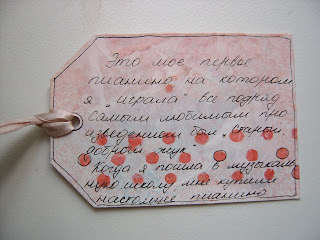 Это мое первое
пианино на котором
я „играла" все подряд
Самым любимым про
изведением был „старый,
добрый жук".
Когда я пошла в музыкаль
ную школу мне купили
настоящее пианино